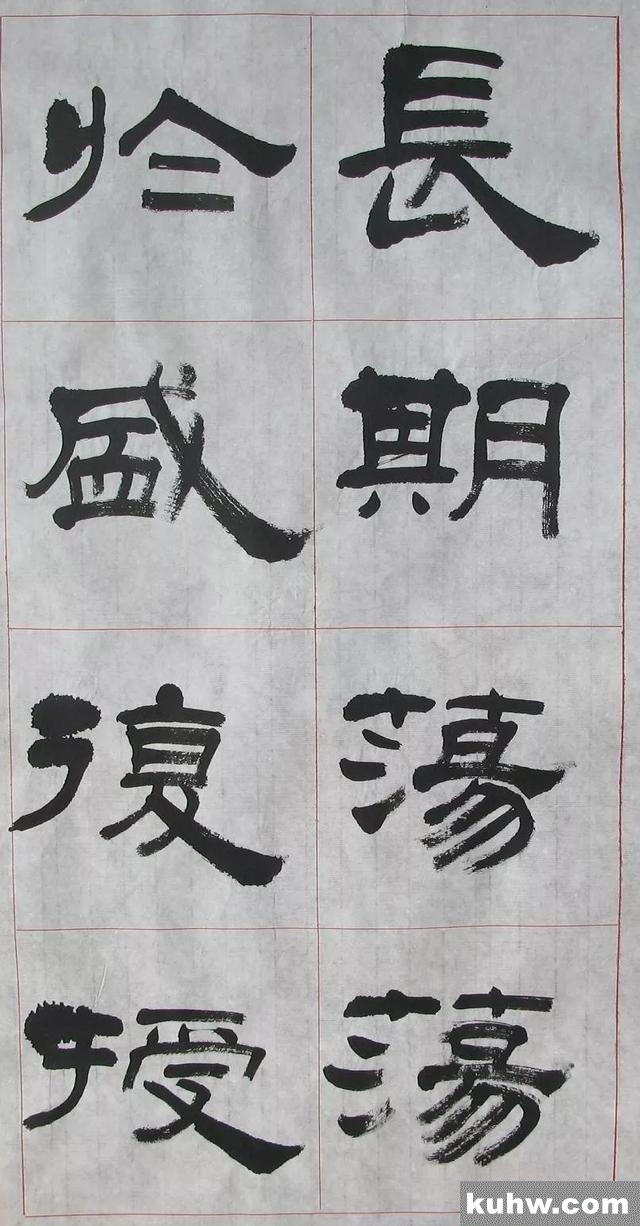 長期蕩蕩
於盛復授
kuhw.com